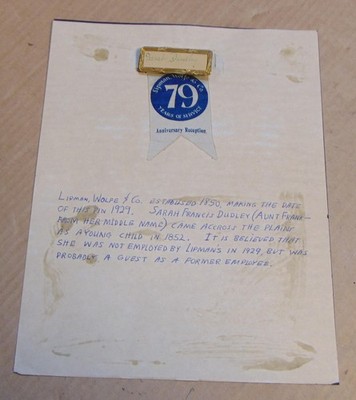 Lipman, Wolfe & Co.
79
YEARS OF SERVICE
Anniversary Reception
LIPMAN, WOLFE & CO. ESTABLISHED 1850, MAKING THE DATE
OF THIS PIN 1929. SARAH FRANCIS DUDLEY (AUNT FRANK -
FROM HER MIDDLE NAME) CAME ACCROSS THE PLAINS
AS A YOUNG CHILD IN 1852. IT IS BELIEVED THAT
SHE WAS NOT EMPLOYED BY LIPMANS IN 1929, BUT WAS
PROBABLY A GUEST AS A FORMER EMPLOYEE.